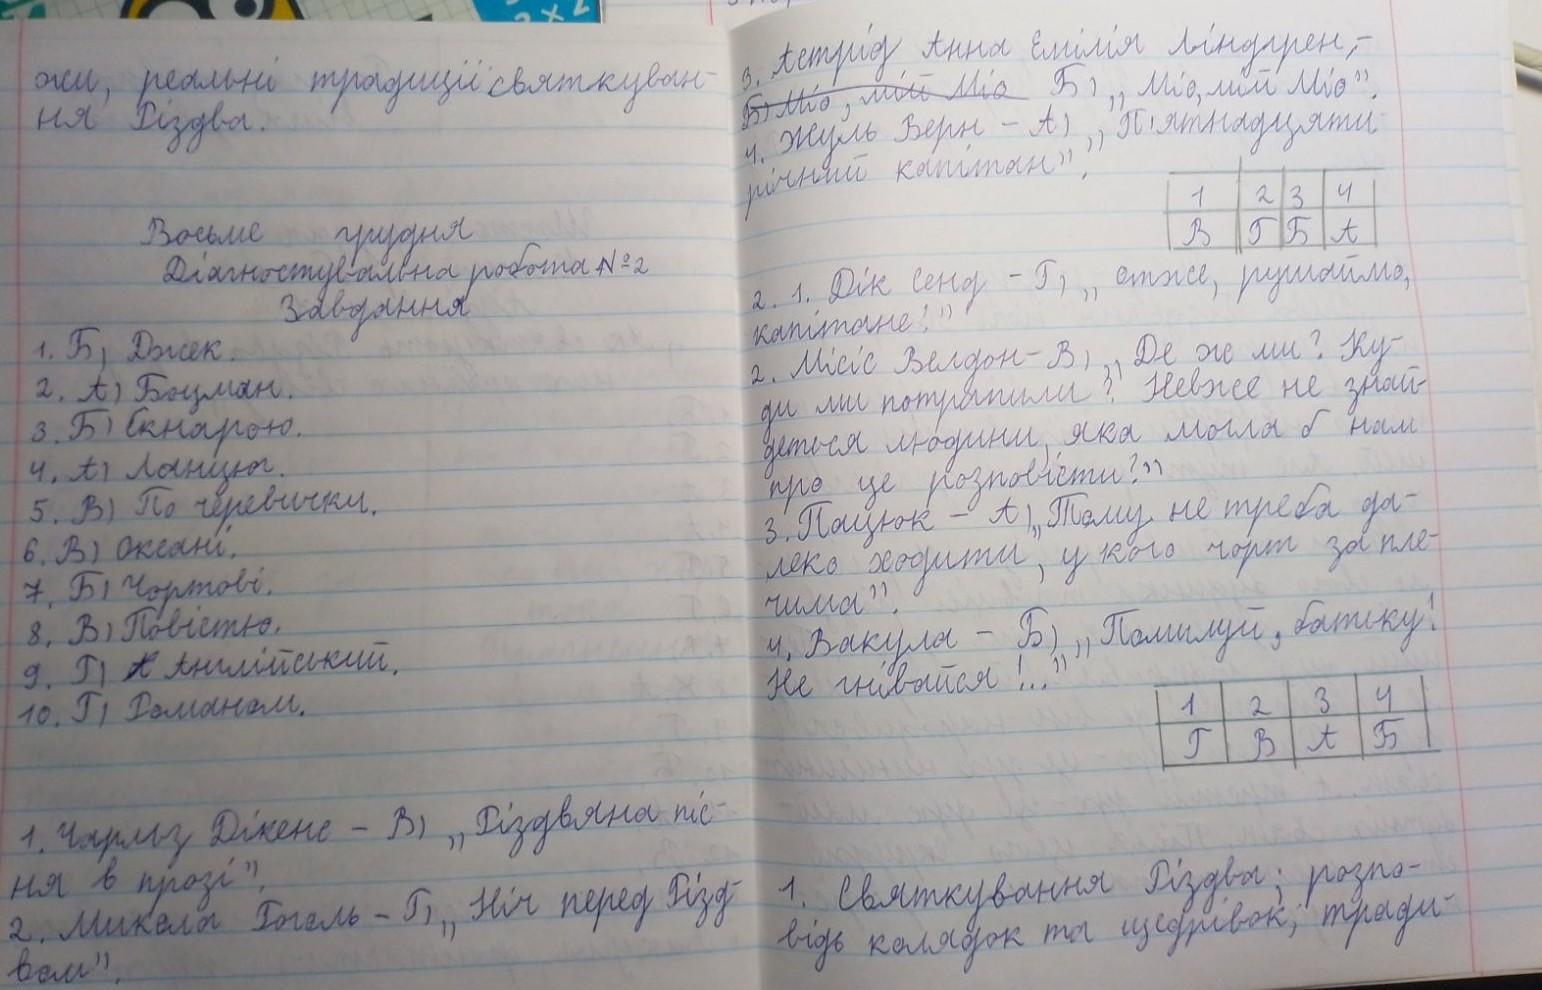 жи, реальні традиції святкуван-
ня Різдва.
Восьме грудня
Діагностувальна робота №2
Завдання
1. Б) Джек.
2. А) Боцман.
3. Б) Єкнарою.
4. А) Ланцюг.
5. В) По черевички.
6. В) Оксані.
7. Б) Чортові.
8. В) Повістю.
9. Г) Англійський.
10. Г) Романом.
1. Чарльз Дікенс – В) „Різдвяна піс-
ня в прозі".
2. Микола Гоголь – Г) „Ніч перед Різд-
вом".
3. Астрід Анна Емілія Ліндгрен, –
Б) Міо, мій Міо Б) „Міо, мій Міо".
4. Жуль Верн – А) „П'ятнадцяти
річний капітан".
1 2 3 4
В Г Б А
2. 1. Дік Сенд – Г) „Отже, рушаймо,
капітане!"
2. Місіс Велдон – В) „Де ж ми? Ку-
ди ми потрапили? Невже не знай-
деться людини, яка могла б нам
про це розповісти?"
3. Пацюк – А) „Тому не треба да-
леко ходити, у кого чорт за пле-
чима".
4. Вакула – Б) „Помилуй, батьку!
Не гнівайся!..."
1 2 3 4
Г В А Б
1. Святкування Різдва; розпо-
відь колядок та щедрівок; тради-